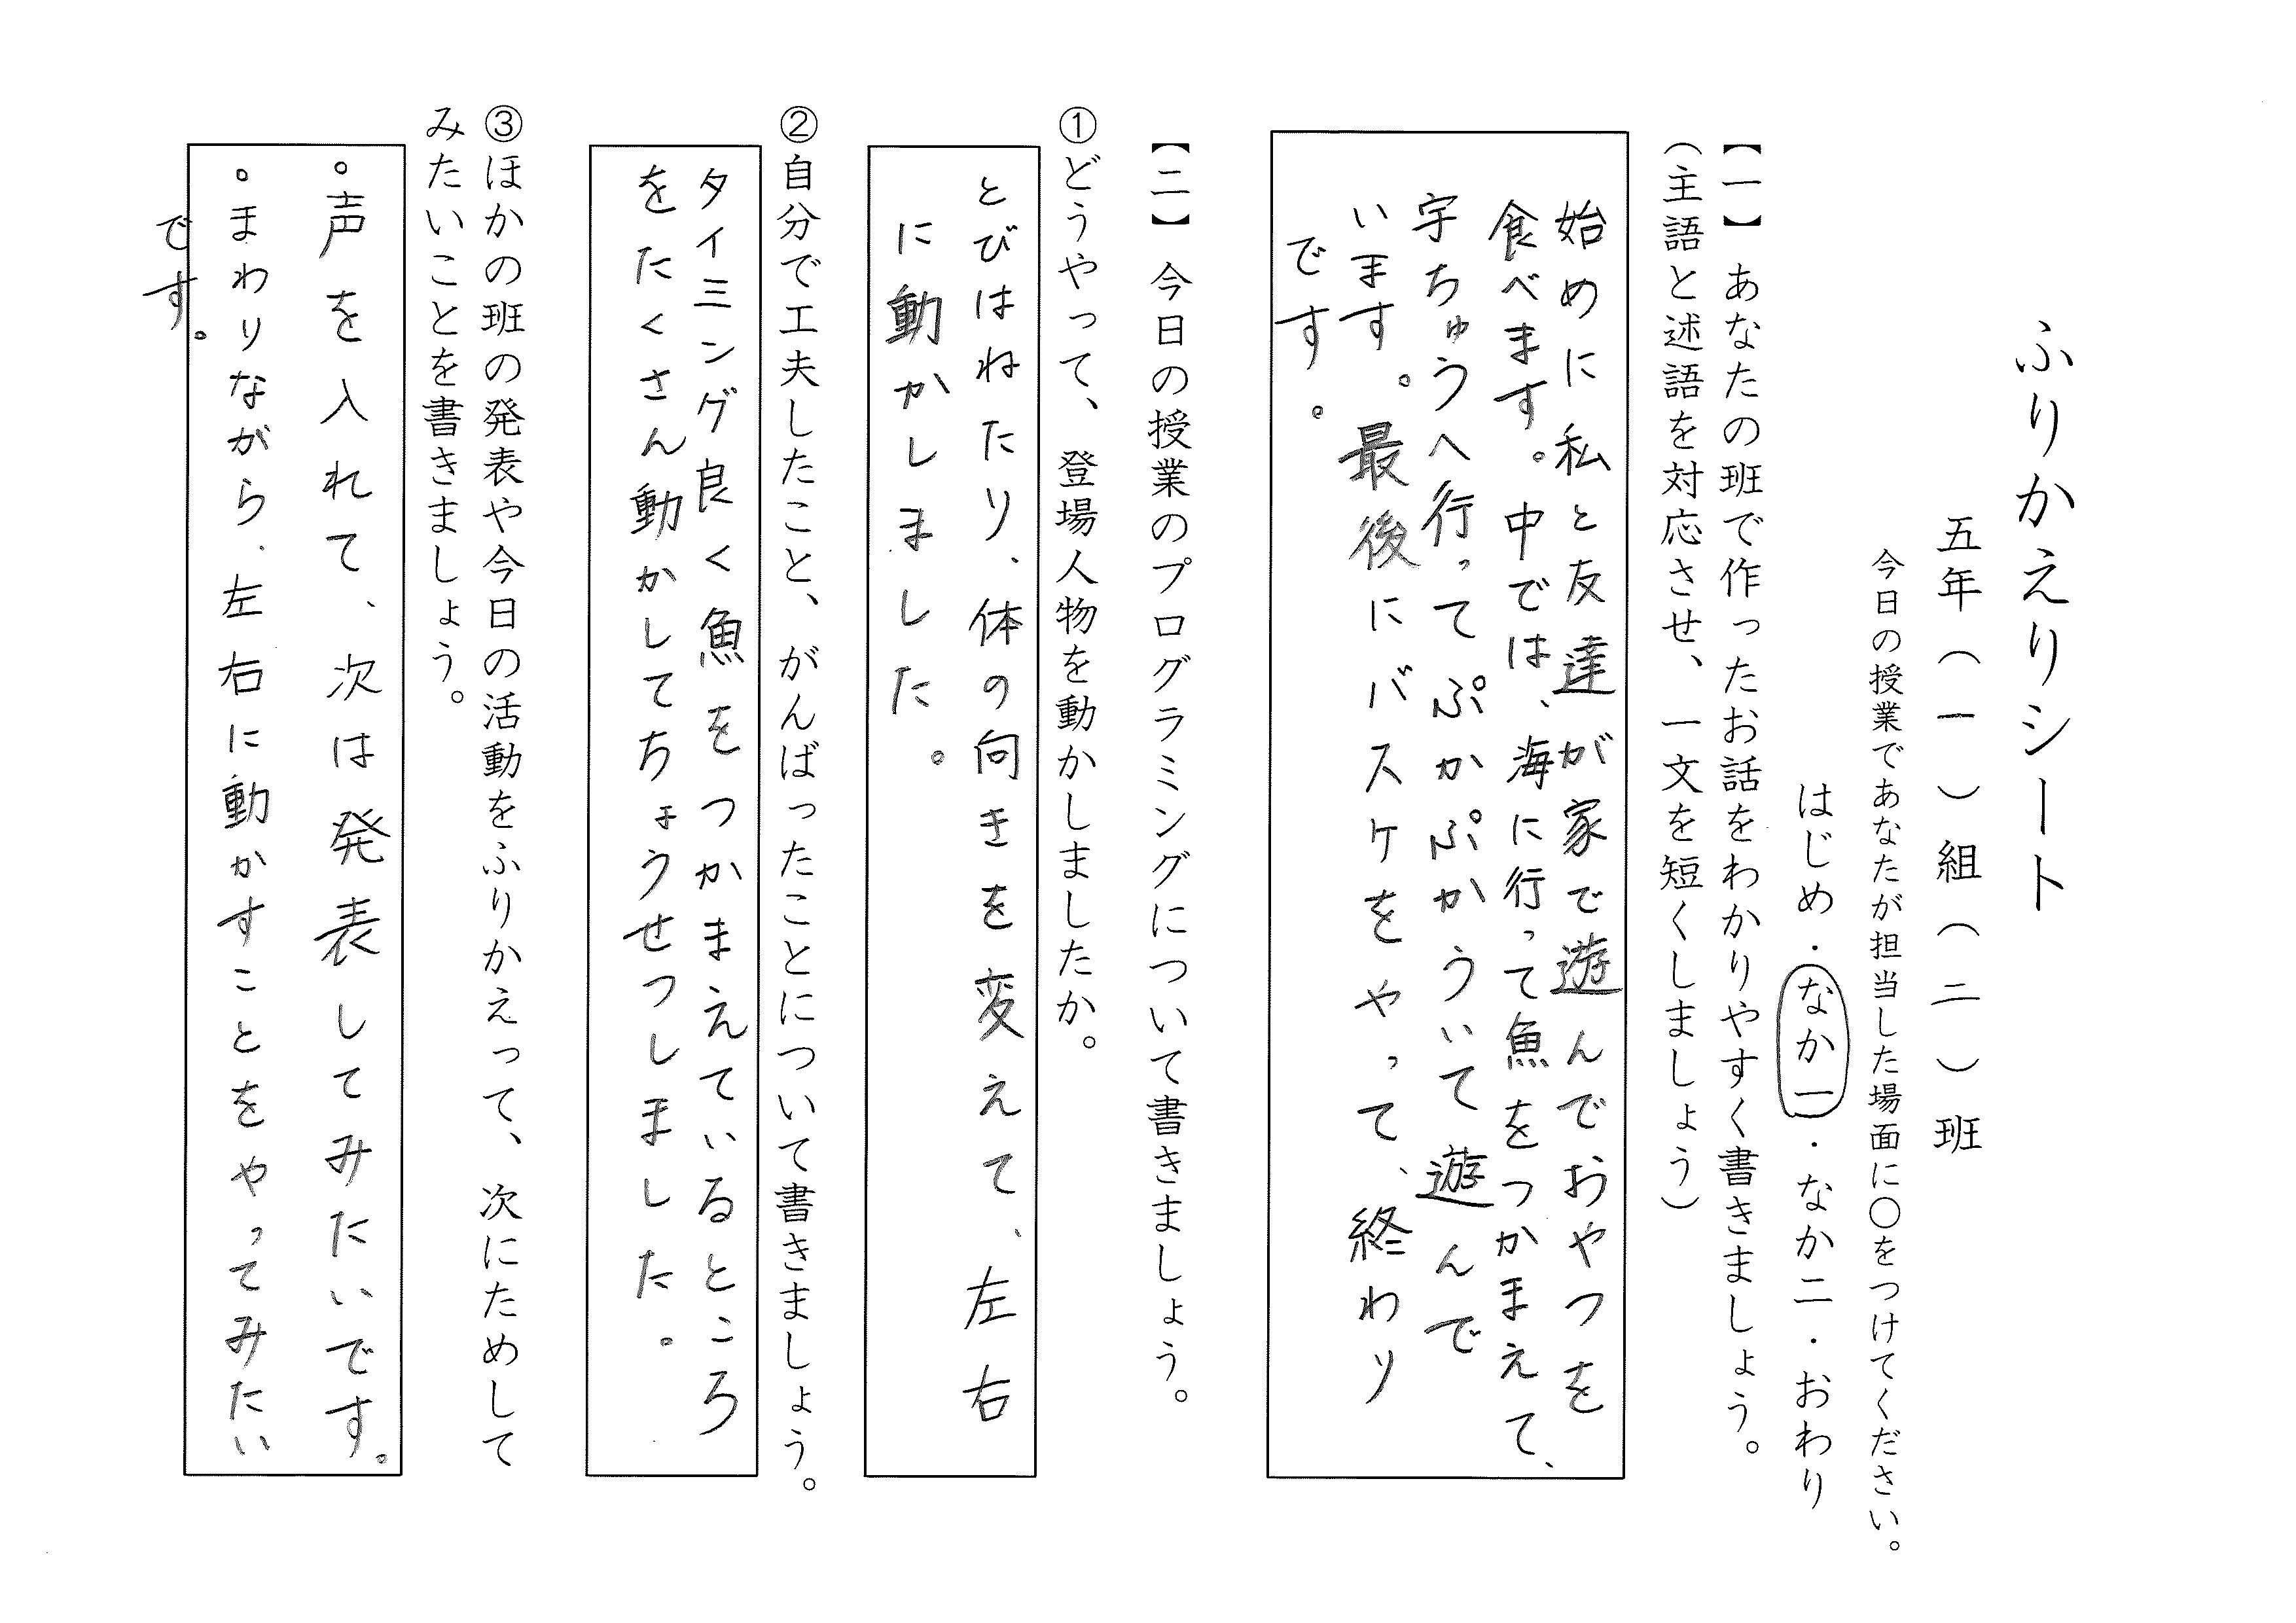 ふりかえりシート
五年（一）組（二）班
今日の授業であなたが担当した場面に〇をつけてください。
はじめ・なか一・なか二・おわり
【一】あなたの班で作ったお話をわかりやすく書きましょう。
（主語と述語を対応させ、一文を短くしましょう）
始めに私と友達が家で遊んでおやつを
食べます。中では、海に行って魚をつかまえて、
宇ちゅうへ行ってぷかぷかういて遊んで
います。最後にバスケをやって、終わり
です。
【二】今日の授業のプログラミングについて書きましょう。
①どうやって、登場人物を動かしましたか。
とびはねたり、体の向きを変えて、左右
に動かしました。
②自分で工夫したこと、がんばったことについて書きましょう。
タイミング良く魚をつかまえているところ
をたくさん動かしてちょうせつしました。
③ほかの班の発表や今日の活動をふりかえって、次にためして
みたいことを書きましょう。
。声を入れて、次は発表してみたいです。
。まわりながら、左右に動かすことをやってみたい
です。